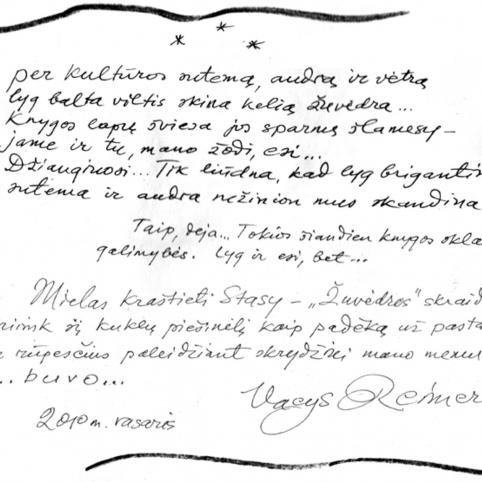 * * *
per kultūros sutemą, audrą ir vėtrą
lyg balta viltis skina kelią Žuvėdra...
Knygos lapų šviesa jos sparnų šlamesy –
jame ir tu, mano žodi, esi...
Džiaugiuosi... Tik liūdna, kad lyg brigantin
sutema ir audra nežinion mus skandina
Taip, deja... Tokios šiandien knygos skla
galimybės. Lyg ir esi, bet...
Mielas kraštieti Stasy – „Žuvėdros" skraid
šį kuklų piešinėlį kaip padėką už pasta
rūpesčius paleidžiant skrydžiui mano
... buvo...
Vacys Reimer
2010 m. vasaris